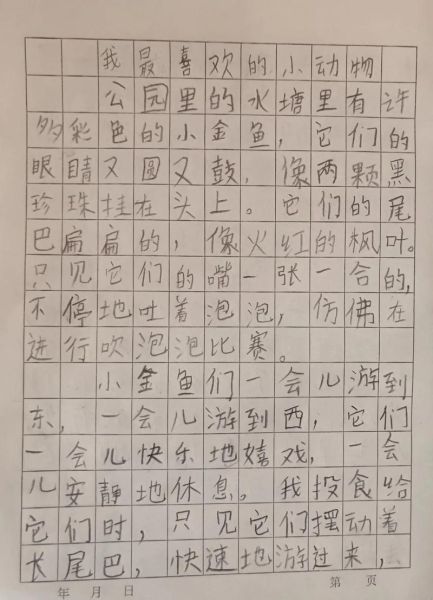 我最喜欢的小动物
公园里的水塘里有许
多彩色的小金鱼，它们的
眼睛又圆又鼓，像两颗黑
珍珠挂在头上。它们的尾
巴扁扁的，像火红的枫叶。
只见它们的嘴一张一合的，
不停地吐着泡泡，仿佛在
进行吹泡泡比赛。
小金鱼们一会儿游到
东，一会儿游到西，它们
一会儿快乐地嬉戏，一会
儿安静地休息。我投食给
它们时，只见它们摆动着
长尾巴，快速地游过来，
年 月 日 第 页